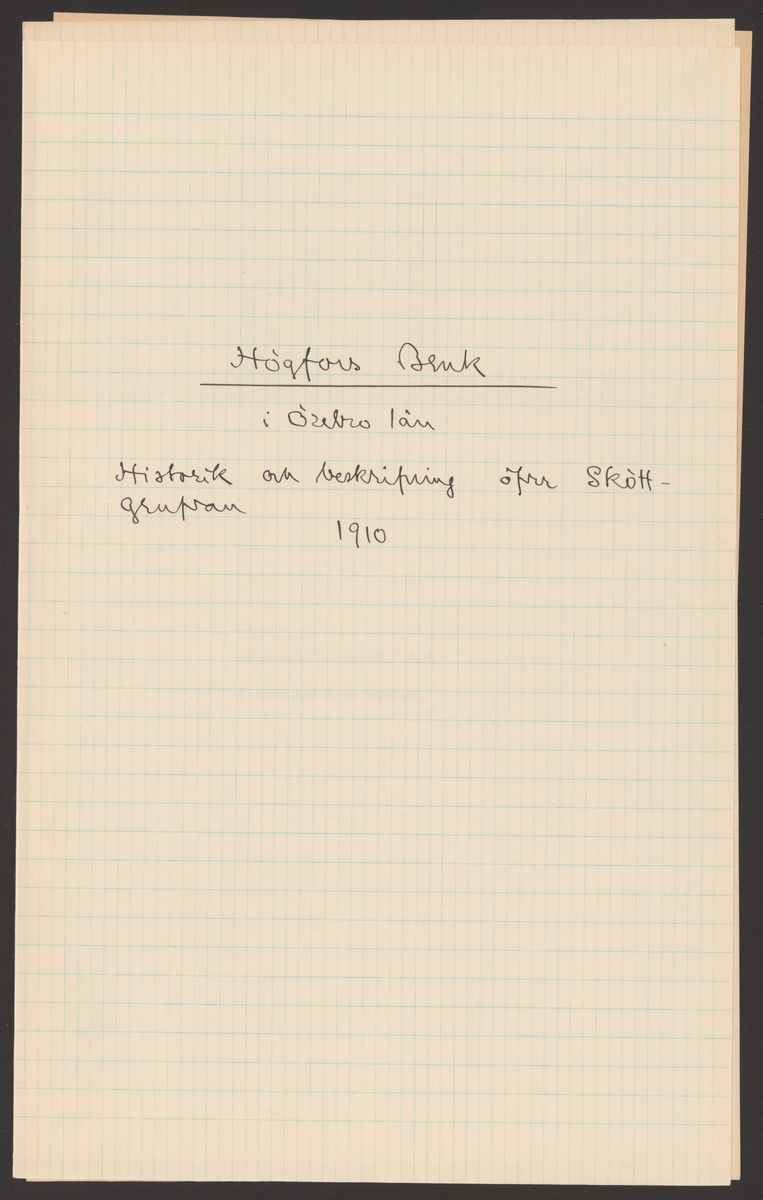 Högfors Bruk
i Örebro län
Historik och beskrifning öfver Skött-
grufvan
1910